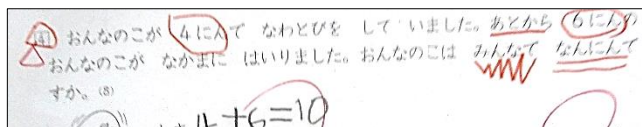 4 おんなのこが 4にんで なわとびを して いました。あとから 6にんの
おんなのこが なかまに はいりました。おんなのこは みんなで なんにんで
すか。(8)
4+6=10